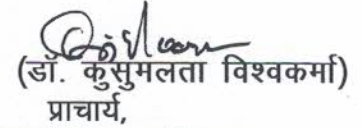 (डॉ. कुसुमलता विश्वकर्मा)
प्राचार्य,